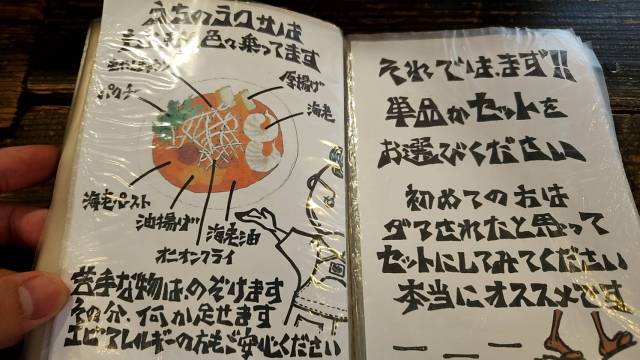 うちのラクサには
色々乗ってます
パクチー
厚揚げ
海老
海老ペースト
油揚げ
海老油
オニオンフライ
苦手な物は、のぞけます
その分、何か足せます
エビアレルギーの方もご安心ください
それでは、まず!!
単品かセットを
お選びください
初めての方は
ダマされたと思って
セットにしてみてください
本当にオススメです